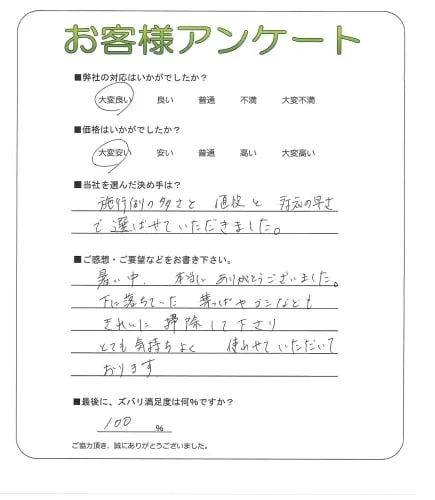 お客様アンケート
■弊社の対応はいかがでしたか?
大変良い 良い 普通 不満 大変不満
■価格はいかがでしたか?
大変安い 安い 普通 高い 大変高い
■当社を選んだ決め手は?
施行例の多さと 値段と 対応の早さ
で選ばせていただきました。
■ご感想・ご要望などをお書き下さい。
暑い中、本当にありがとうございました。
下に落ちていた 葉っぱやゴミなども
きれいに掃除して下さり
とても気持ちよく 使わせていただいて
おります
■最後に、ズバリ満足度は何%ですか?
100 %
ご協力頂き、誠にありがとうございました。